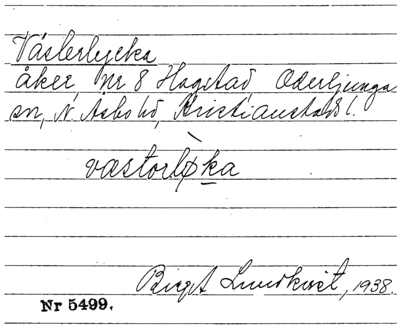 Västerlycka
åker, nr 8 Hagstad, Oderljunga
sn, N. Åsbo hd, Kristianstads l.
væstorløka
Birgit Lundkvist, 1938.
Nr 5499.